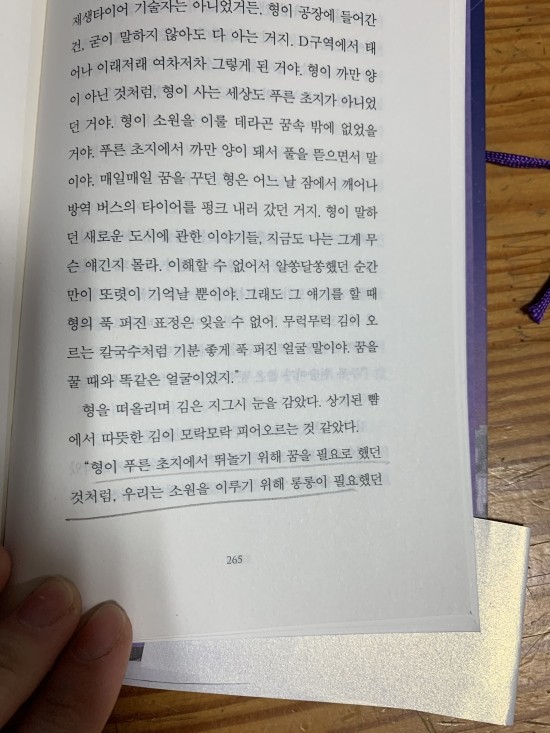 재생타이어 기술자는 아니었거든, 형이 공장에 들어간
건, 굳이 말하지 않아도 다 아는 거지. D구역에서 태
어나 이래저래 여차저차 그렇게 된 거야. 형이 까만 양
이 아닌 것처럼, 형이 사는 세상도 푸른 초지가 아니었
던 거야. 형이 소원을 이룰 데라곤 꿈속 밖에 없었을
거야. 푸른 초지에서 까만 양이 돼서 풀을 뜯으면서 말
이야. 매일매일 꿈을 꾸던 형은 어느 날 잠에서 깨어나
방역 버스의 타이어를 펑크 내러 갔던 거지. 형이 말하
던 새로운 도시에 관한 이야기들, 지금도 나는 그게 무
슨 얘긴지 몰라. 이해할 수 없어서 알쏭달쏭했던 순간
만이 또렷이 기억날 뿐이야. 그래도 그 얘기를 할 때
형의 푹 퍼진 표정은 잊을 수 없어. 무럭무럭 김이 오
르는 칼국수처럼 기분 좋게 푹 퍼진 얼굴 말이야. 꿈을
꿀 때와 똑같은 얼굴이었지.”
형을 떠올리며 김은 지그시 눈을 감았다. 상기된 뺨
에서 따뜻한 김이 모락모락 피어오르는 것 같았다.
“형이 푸른 초지에서 뛰놀기 위해 꿈을 필요로 했던
것처럼, 우리는 소원을 이루기 위해 롱롱이 필요했던
265